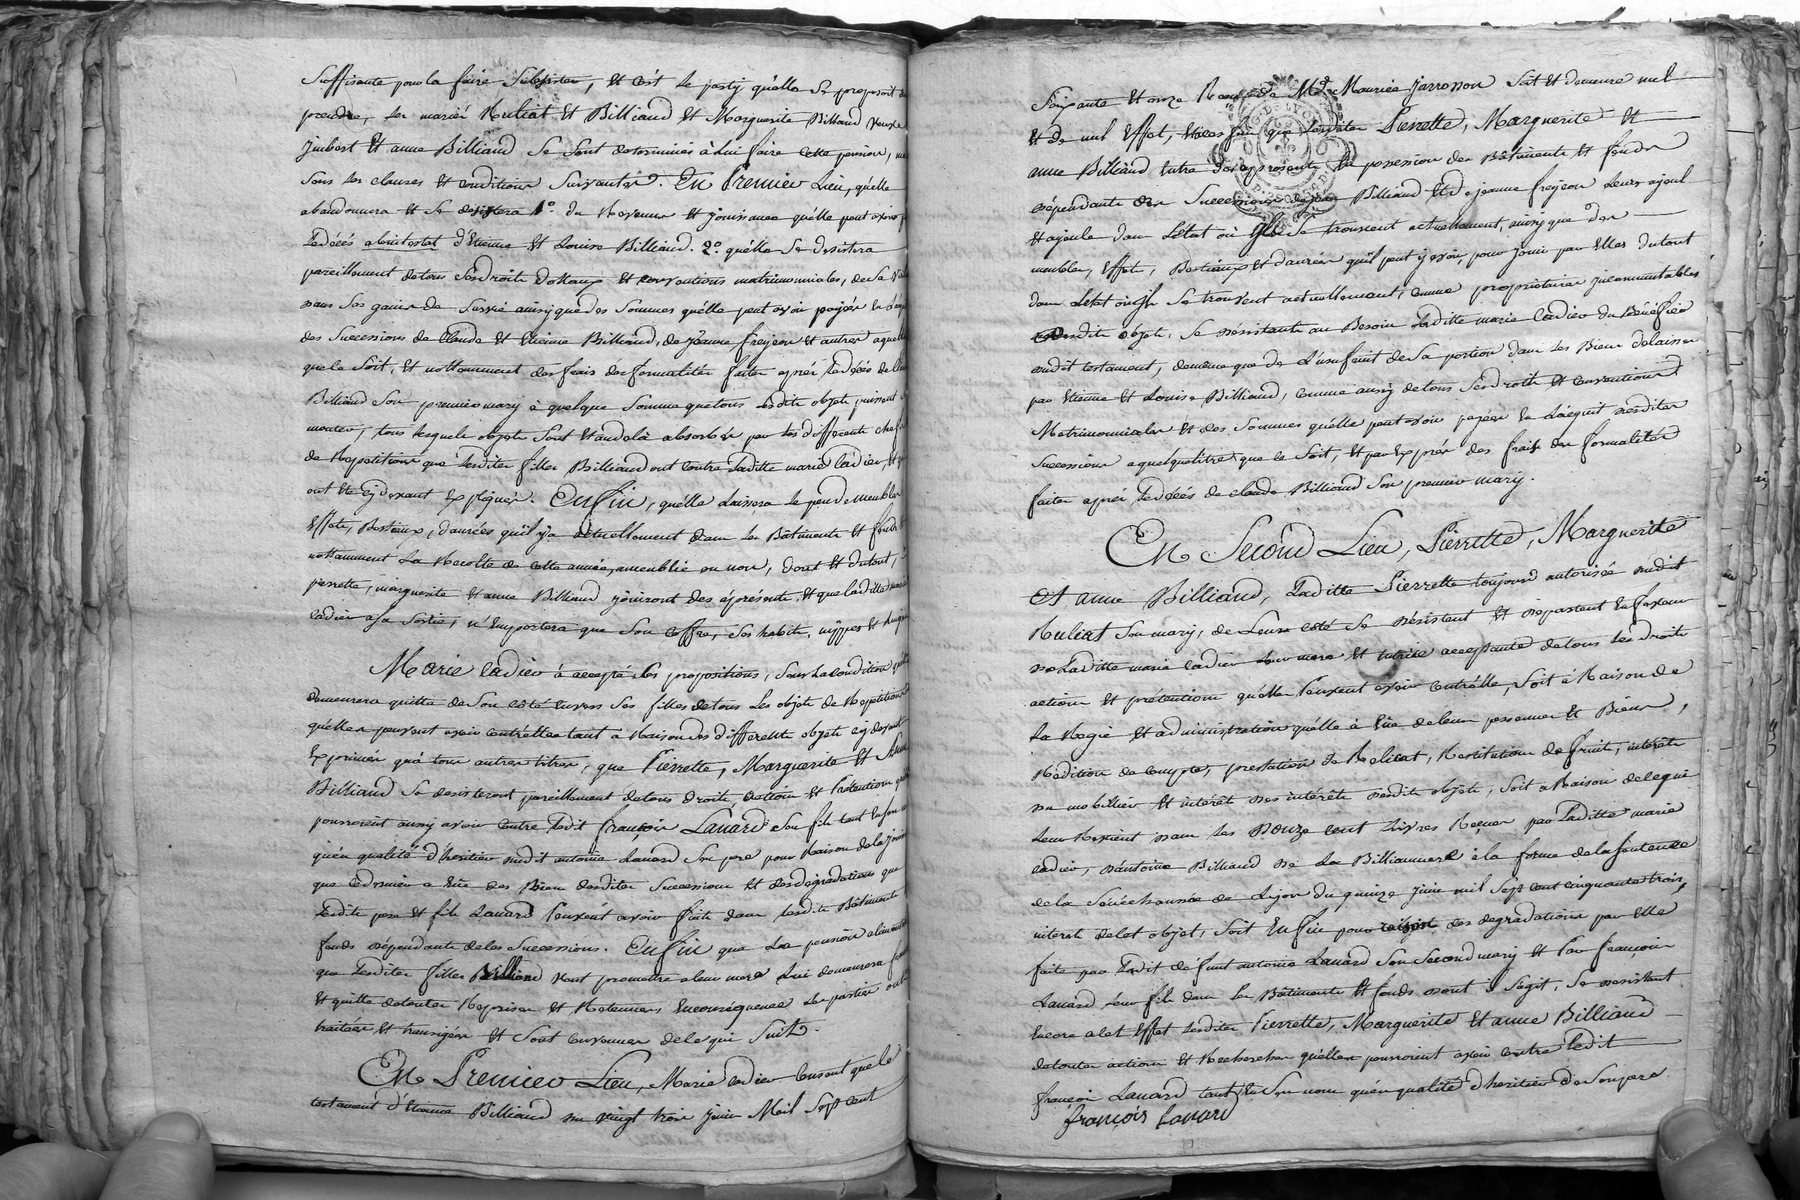 Suffisante pour la faire Subsister, et c'est le party qu'elle se proposoit de
prendre, les mariés Ruliat et Billiaud et Marguerite Billiaud veuve
Jmbert et anne Billiaud se sont determinés à lui faire cette pension, mais
sous les clauses et conditions suivantes. En Premier Lieu, quelle
abandonnera et se desistera 1°. du Revenu et jouissance qu'elle peut avoir
Le décés abintestat d'Etienne et Louise Billiaud. 2°. quélle se desistera
pareillement detous ses droits dottaux et conventions matrimoniales, de sa
dans ses gains de survie ainsy que des sommes quélle peut avoir payées en
des Successions de Claude et Etienne Billiaud, de jeanne frejeon et autres a quel
que ce soit, et nottamment des frais des formalités faites aprés le décés de
Billiaud son premier mary à quelque somme que tous lesdits objets puissent
monter, tous lesquels objets sont et audelà absorbés par les differents chefs
de Repetitions que lesdites filles Billiaud ont contre laditte marie Cadier, et
ont été cydevant Expliqués. Enfin, qu'élle laissera le peu de meubles
Effets, Bestiaux, danrées qu'il y a actuellement dans les Bâtiments et fonds
nottamment la Recolte de cette année, ameublie ou non, dont et dutout,
pierrette, marguerite et anne Billiaud joüiront dés àprésent, et que laditte marie
Cadier a sa sortie, n'Emportera que son coffre, ses habits, nippes et linges
Marie Cadier à accepté ces propositions, sous la condition quelle
demeurera quitte de son coté envers ses filles detous les objets de Repetitions
qu'élles peuvent avoir contrélle tant à Raison des differents objets cydevant
Exprimés qu'à tous autres titres, que Pierrette, Marguerite et Anne
Billiaud se desisteront pareillement detous droits, action et Pretentions qu'elles
pourroient aussy avoir contre ledit françois Lauard son fils tant en son nom
qu'en qualité d'heritier dudit antoine Lauard son pere pour Raison de la joüis
que ce dernier a Eüe des Biens desdites successions et des dégradations que
lesdits pere et fils Lauard peuvent avoir faits dans lesdits Bâtiments
fonds dépendants de les successions. Enfin que la pension alimentaire
que lesdites filles Billiaud vont promettre a leur mere lui demeurera franche
et quitte detoutes Reprises et Retenues Enconséquence les parties ont
traitées et transigées et sont convenues dece qui suit.
En Premier Lieu, Marie Cadier consent que le
testament d'Etienne Billiaud du vingt trois juin Mil Sept cent
Soixante et onze Reçu de Me. Mauries Jarrosson soit et demeure nul
et de nul Effet, que lesdites Pierrette, Marguerite et
anne Billiaud entre desàprésent En possession des Bâtiments et fonds
dépendants des Successions Billiaud et de jeanne frejeon leurs ayeul
et ayeule dans l'état où se trouvent actuellement, ainsy que des
meubles, Effets, Bestiaux et danrées qu'il peut y avoir, pour jouir par Elles dutout
dans l'etat oú ils se trouvent actuellement, comme proprietaires jncommutables
desdits objets, se désistante au Besoin Laditte marie Cadier du Bénéfice
dudit testament, demême que de l'usufruit de sa portion dans les Biens delaissés
par Etienne et Louise Billiaud, comme aussy detous ses droits et conventions
Matrimoniales et des sommes qu'élle peut avoir payées en l'acquit desdites
Successions a quelquetitre que ce soit, et par Exprés des frais des formalités
faites aprés le décés de claude Billiaud son premier mary.
En Second Lieu, Pierrette, Marguerite
Et anne Billiaud, Laditte Pierrette toujours autorisée dudit
Ruliat son mary, de Leurs coté se désistent et départent En faveur
de Laditte marie Cadier leur mere et tutrice acceptante detous les droits
actions et prétentions qu'élles peuvent avoir contrélle, soit à Raison de
la Regie et administration qu'élle à Eüe de leurs personnes et Biens,
Rédition de compte, prestation de Relicat, Restitution de fruits, interêts
du mobillier et intérêts des intérêts desdits objets, soit a Raison de ce qui
leur Revient dans les Douze cent Livres Reçues par Laditte marie
Cadier, d'antoine Billiaud de la Billianniere à la forme de la sentence
de la Sénéchaussée de Lyon du quinze juin mil sept cent cinquante trois,
interets de cet objet, soit Enfin pour raison des degradations par Elle
faite par ledit défunt antoine Lauard son second mary et Par françois
Lauard, leur fils dans les Bâtiments et fonds dont il s'agit, se désistant
Encore a cet Effet lesdites Pierrette, Marguerite et anne Billiaud
detoutes actions et Recherches qu'élles pourroient avoir contre ledit
françois Lauard tant En son nom qu'en qualité d'heritier de son pere
françois Lauard